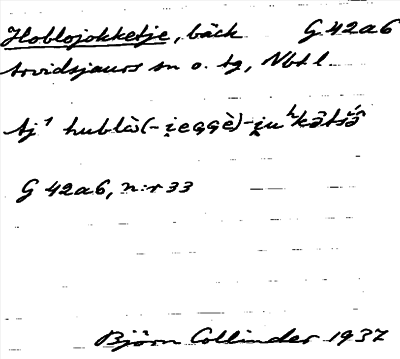 Hoblojokketje, bäck G 42a6
Arvidsjaurs sn o. tg, Nbtl
tj¹ hublà̀(-i̯eggè)-i̯uʰkǝ̄tšǝ́
G 42a6, n:r 33
Björn Collinder 1937